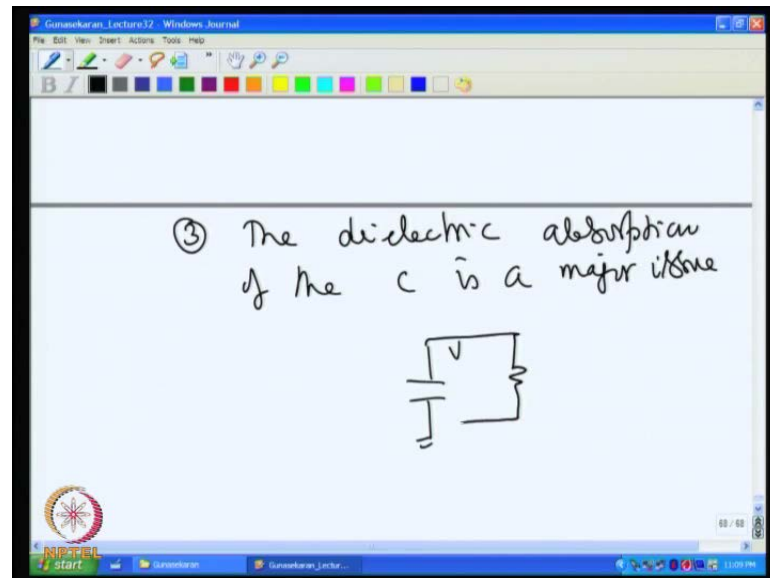 Gunasekaran_Lecture32 - Windows Journal
File Edit View Insert Actions Tools Help
B I
③ The dielectric absorption
of the C is a major issue
V
68 / 68
NPTEL
start Gunasekaran Gunasekaran_Lectur... 11:09 PM